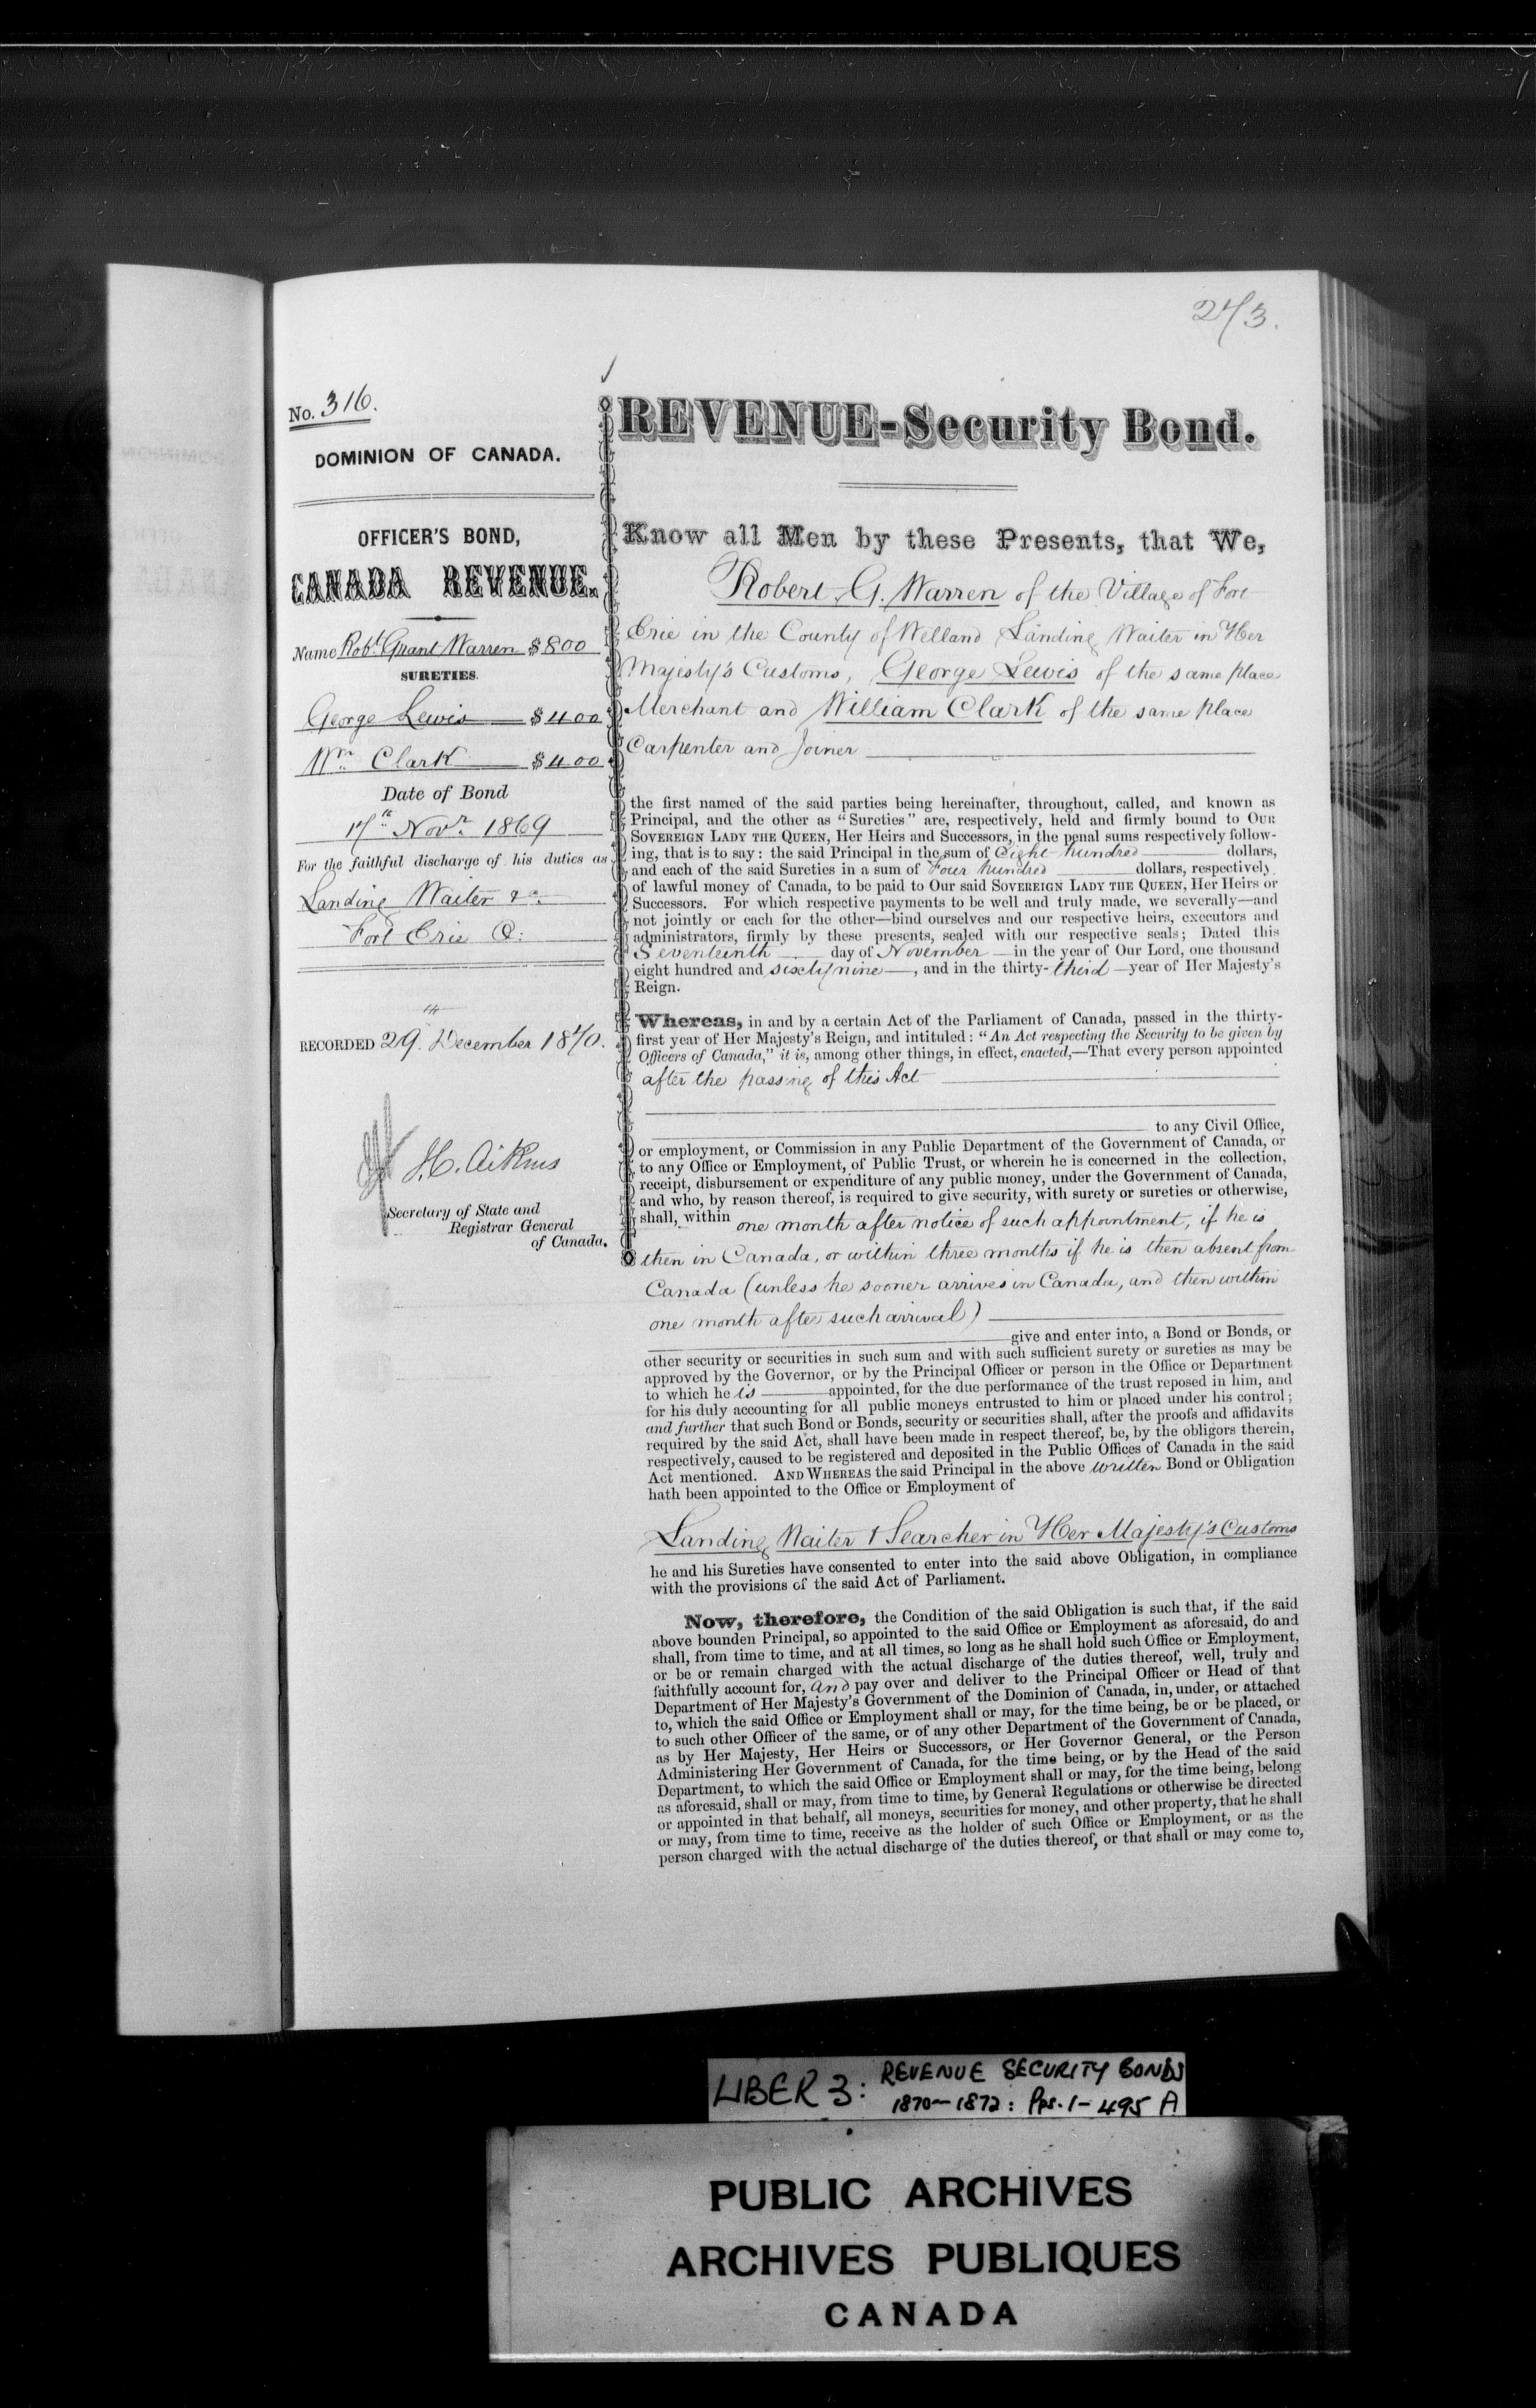 273.
No. 316.
DOMINION OF CANADA.
OFFICER'S BOND,
CANADA REVENUE.
Name Robt. Grant Warren $800
SURETIES.
George Lewis $400
Wm. Clark $400
Date of Bond
17th Novr. 1869
For the faithful discharge of his duties as
Landing Waiter &c.
Fort Erie O:
RECORDED 29th December 1870.
J.C. Aikins
Secretary of State and
Registrar General
of Canada.
REVENUE-Security Bond.
Know all Men by these Presents, that We,
Robert G. Warren of the Village of Fort
Erie in the County of Welland Landing Waiter in Her
Majesty's Customs, George Lewis of the same place
Merchant and William Clark of the same place
Carpenter and Joiner
the first named of the said parties being hereinafter, throughout, called, and known as
Principal, and the other as "Sureties" are, respectively, held and firmly bound to OUR
SOVEREIGN LADY THE QUEEN, Her Heirs and Successors, in the penal sums respectively follow-
ing, that is to say: the said Principal in the sum of Eight hundred dollars,
and each of the said Sureties in a sum of Four hundred dollars, respectively
of lawful money of Canada, to be paid to Our said SOVEREIGN LADY THE QUEEN, Her Heirs or
Successors. For which respective payments to be well and truly made, we severally—and
not jointly or each for the other—bind ourselves and our respective heirs, executors and
administrators, firmly by these presents, sealed with our respective seals; Dated this
Seventeenth day of November in the year of Our Lord, one thousand
eight hundred and sixty nine—, and in the thirty-third—year of Her Majesty's
Reign.
Whereas, in and by a certain Act of the Parliament of Canada, passed in the thirty-
first year of Her Majesty's Reign, and intituled: "An Act respecting the Security to be given by
Officers of Canada," it is, among other things, in effect, enacted,—That every person appointed
after the passing of this Act
to any Civil Office,
or employment, or Commission in any Public Department of the Government of Canada, or
to any Office or Employment, of Public Trust, or wherein he is concerned in the collection,
receipt, disbursement or expenditure of any public money, under the Government of Canada,
and who, by reason thereof, is required to give security, with surety or sureties or otherwise,
shall, within one month after notice of such appointment, if he is
then in Canada, or within three months if he is then absent from
Canada (unless he sooner arrives in Canada, and then within
one month after such arrival)
give and enter into, a Bond or Bonds, or
other security or securities in such sum and with such sufficient surety or sureties as may be
approved by the Governor, or by the Principal Officer or person in the Office or Department
to which he is appointed, for the due performance of the trust reposed in him, and
for his duly accounting for all public moneys entrusted to him or placed under his control;
and further that such Bond or Bonds, security or securities shall, after the proofs and affidavits
required by the said Act, shall have been made in respect thereof, be, by the obligors therein,
respectively, caused to be registered and deposited in the Public Offices of Canada in the said
Act mentioned. AND WHEREAS the said Principal in the above written Bond or Obligation
hath been appointed to the Office or Employment of
Landing Waiter & Searcher in Her Majesty's Customs
he and his Sureties have consented to enter into the said above Obligation, in compliance
with the provisions of the said Act of Parliament.
Now, therefore, the Condition of the said Obligation is such that, if the said
above bounden Principal, so appointed to the said Office or Employment as aforesaid, do and
shall, from time to time, and at all times, so long as he shall hold such Office or Employment,
or be or remain charged with the actual discharge of the duties thereof, well, truly and
faithfully account for, and pay over and deliver to the Principal Officer or Head of that
Department of Her Majesty's Government of the Dominion of Canada, in, under, or attached
to, which the said Office or Employment shall or may, for the time being, be or be placed, or
to such other Officer of the same, or of any other Department of the Government of Canada,
as by Her Majesty, Her Heirs or Successors, or Her Governor General, or the Person
Administering Her Government of Canada, for the time being, or by the Head of the said
Department, to which the said Office or Employment shall or may, for the time being, belong
as aforesaid, shall or may, from time to time, by General Regulations or otherwise be directed
or appointed in that behalf, all moneys, securities for money, and other property, that he shall
or may, from time to time, receive as the holder of such Office or Employment, or as the
person charged with the actual discharge of the duties thereof, or that shall or may come to,
LIBER 3: REVENUE SECURITY BONDS
1870-1872: Pps. 1-495 A
PUBLIC ARCHIVES
ARCHIVES PUBLIQUES
CANADA